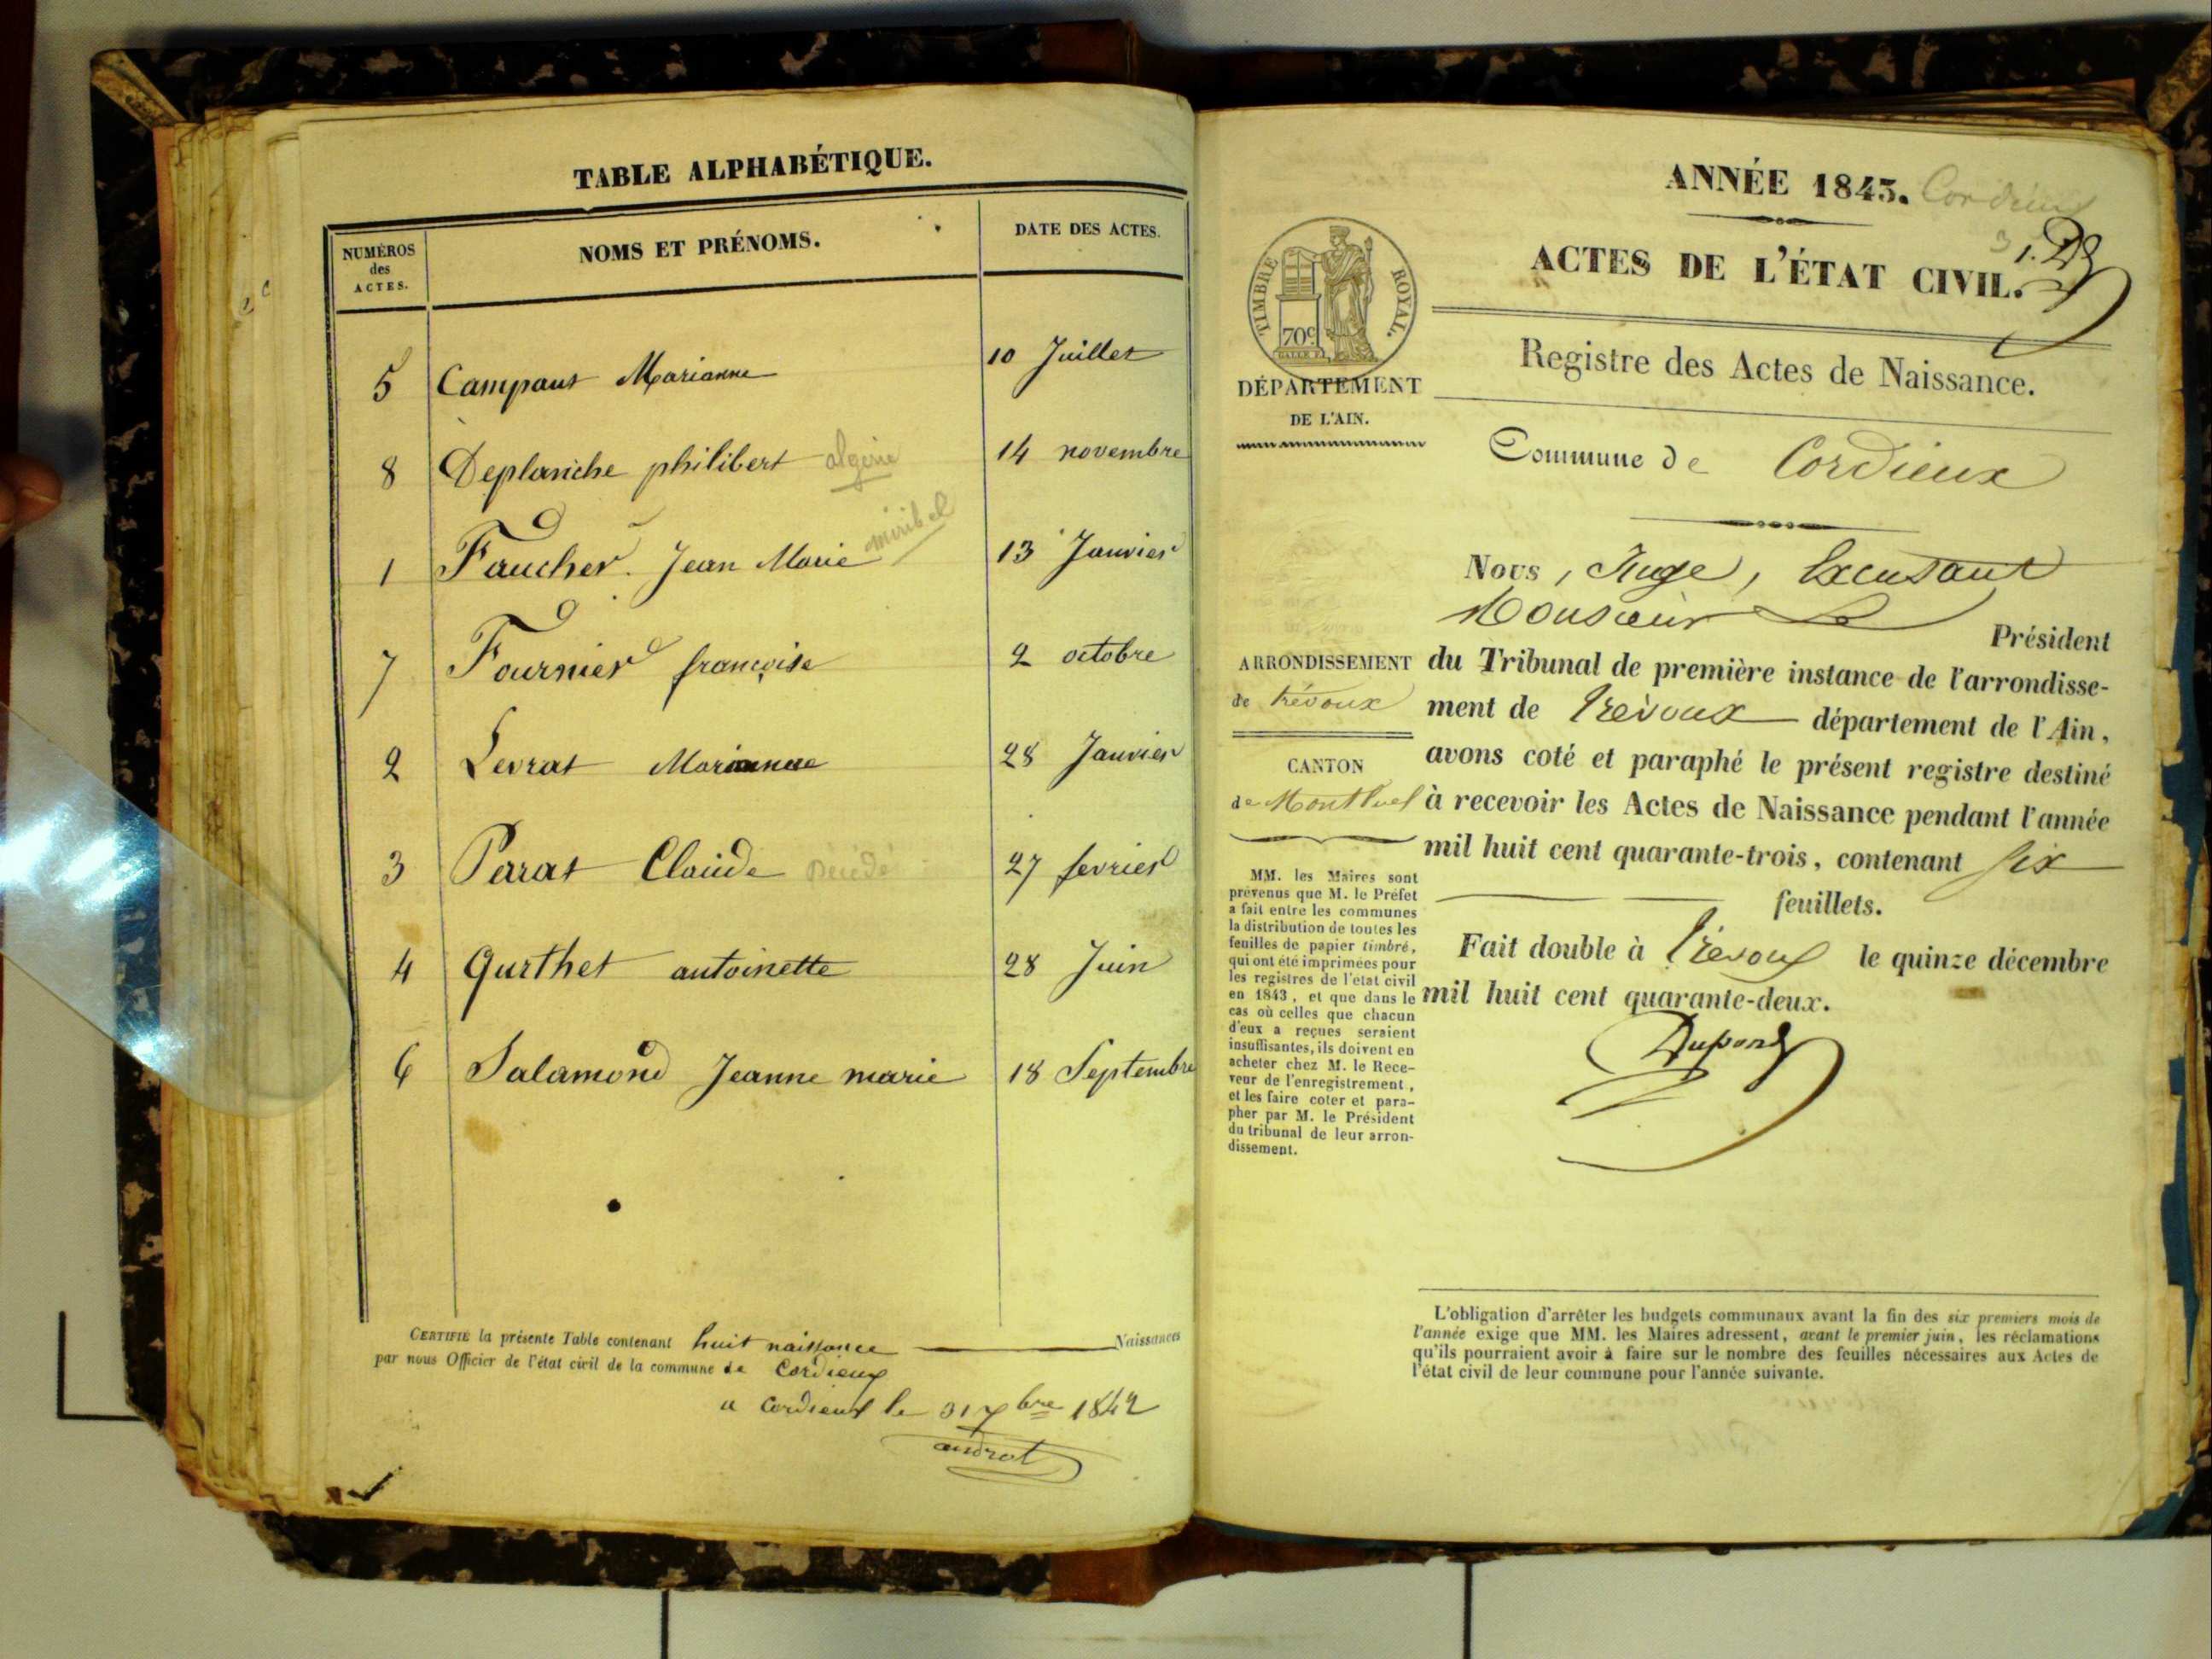 TABLE ALPHABÉTIQUE.
NUMÉROS des ACTES. NOMS ET PRÉNOMS. DATE DES ACTES.
5 Campant Marianne 10 Juillet
8 Deplanche philibert algerie 14 novembre
1 Faucher Jean Marie miribel 13 Janvier
7 Fournier françoise 2 octobre
2 Levrat Marianne 28 Janvier
3 Parat Claude Décédé 27 fevrier
4 Qurthet antoinette 28 Juin
6 Salamond Jeanne marie 18 Septembre
CERTIFIÉ la présente Table contenant huit naissance Naissances
par nous Officier de l'état civil de la commune de Cordieux
a Cordieux le 31 bre 1842
androt
ANNÉE 1843. Cordieux
1. D
ACTES DE L'ÉTAT CIVIL.
TIMBRE ROYAL.
70c
DÉPARTEMENT
DE L'AIN.
Registre des Actes de Naissance.
Commune de Cordieux
ARRONDISSEMENT
de trévoux
CANTON
de Montluel
MM. les Maires sont
prévenus que M. le Préfet
a fait entre les communes
la distribution de toutes les
feuilles de papier timbré,
qui ont été imprimées pour
les registres de l'état civil
en 1843, et que dans le
cas où celles que chacun
d'eux a reçues seraient
insuffisantes, ils doivent en
acheter chez M. le Rece-
veur de l'enregistrement,
et les faire coter et para-
pher par M. le Président
du tribunal de leur arron-
dissement.
Nous, Juge, Excusant
Monsieur Le
Président
du Tribunal de première instance de l'arrondisse-
ment de Trévoux département de l'Ain,
avons coté et paraphé le présent registre destiné
à recevoir les Actes de Naissance pendant l'année
mil huit cent quarante-trois, contenant six
feuillets.
Fait double à Trévoux le quinze décembre
mil huit cent quarante-deux.
Dupond
L'obligation d'arrêter les budgets communaux avant la fin des six premiers mois de
l'année exige que MM. les Maires adressent, avant le premier juin, les réclamations
qu'ils pourraient avoir à faire sur le nombre des feuilles nécessaires aux Actes de
l'état civil de leur commune pour l'année suivante.